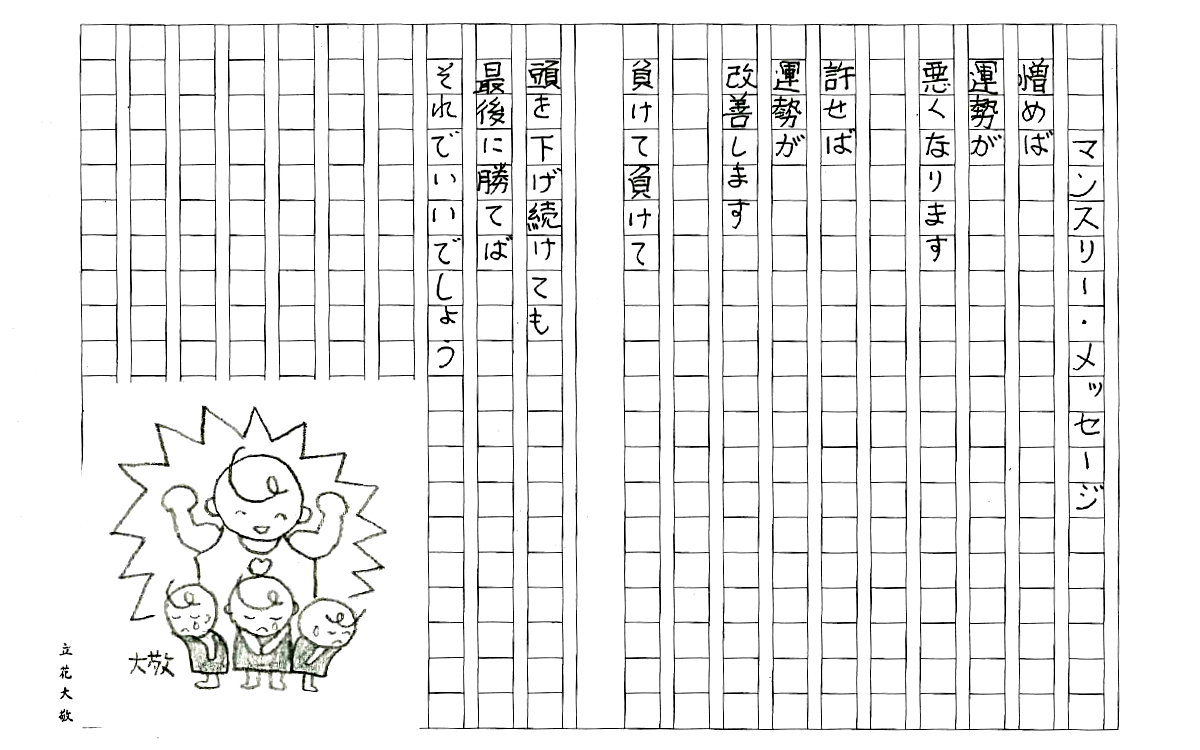 マンスリー・メッセージ
憎めば
運勢が
悪くなります
許せば
運勢が
改善します
負けて負けて
頭を下げ続けても
最後に勝てば
それでいいでしょう
大敬
立花大敬